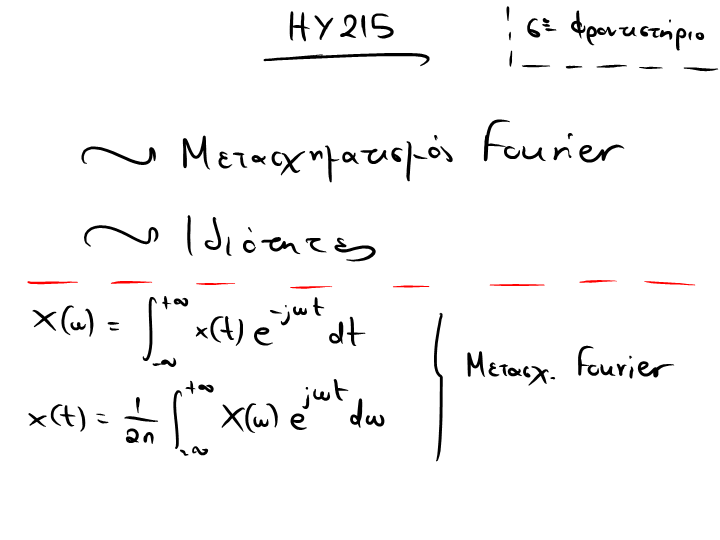 HY215
6º Φροντιστήριο
Μετασχηματισμός Fourier
Ιδιότητες
X(ω) = ∫_{-∞}^{+∞} x(t) e^{-jωt} dt
x(t) = \frac{1}{2π} ∫_{-∞}^{+∞} X(ω) e^{jωt} dω
Μετασχ. Fourier